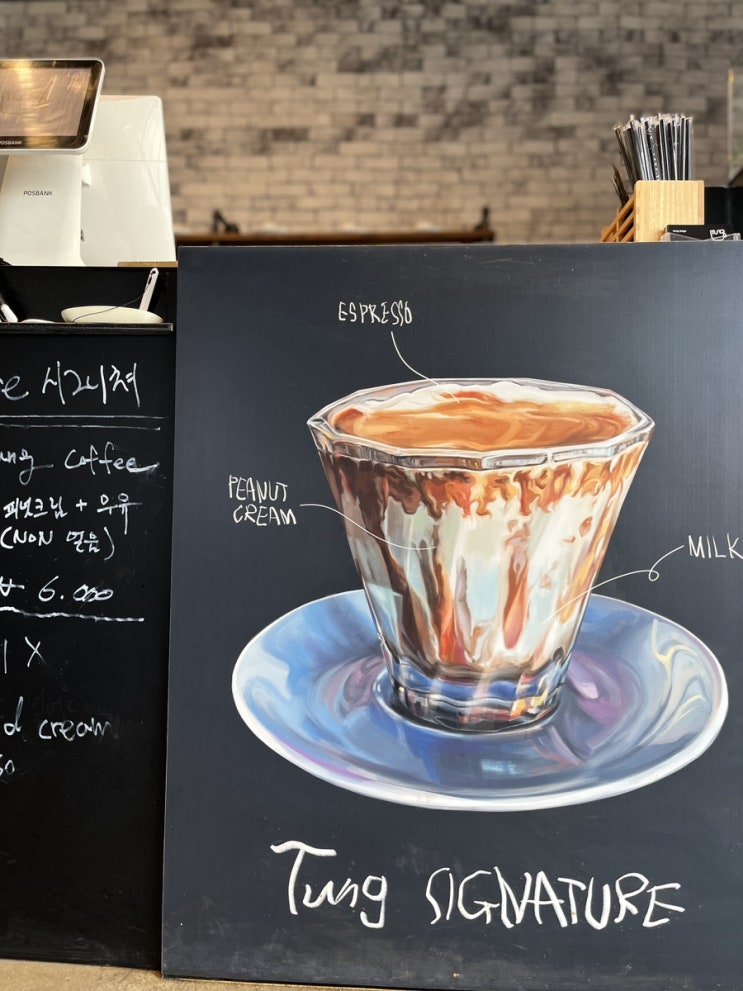 POSBANK
POSBANK
시그니쳐
Coffee
피넛크림 + 우유
(NON 얼음)
6.000
X
cream
ESPRESSO
PEANUT
CREAM
MILK
Tung SIGNATURE